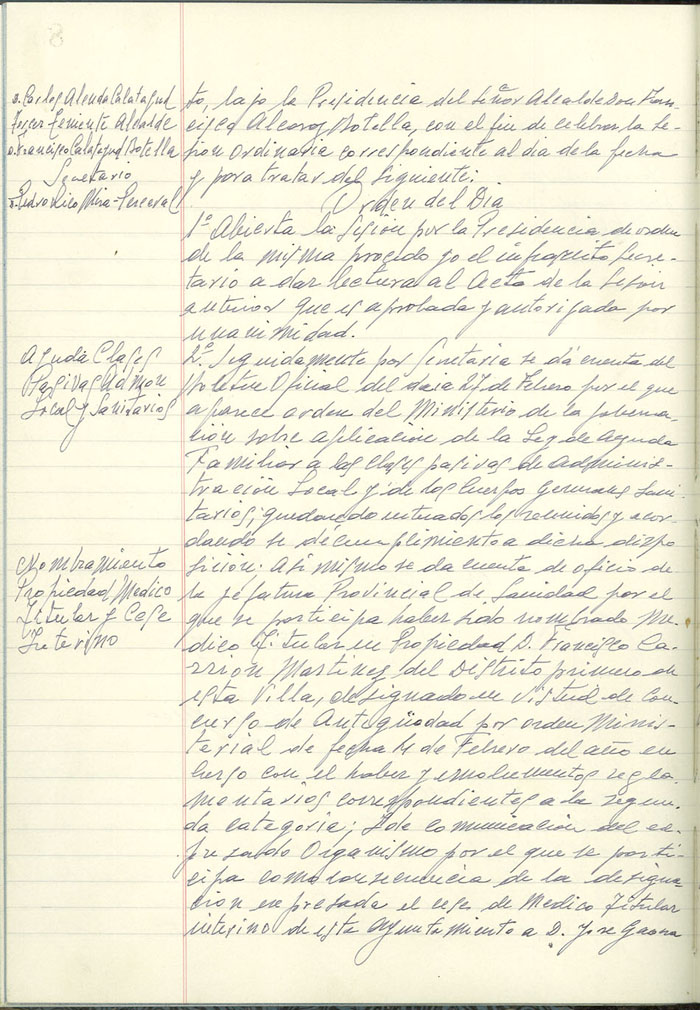 D. Carlos Alenda Calatayud
Tercer Teniente Alcalde
D. Francisco Calatayud Botella
Secretario
D. Pedro Rico Mira-Perceval
to, bajo la Presidencia del Señor Alcalde Don Fran-
cisco Alcaraz Botella, con el fin de celebrar la Se-
sion Ordinaria correspondiente al dia de la fecha
y para tratar del siguiente:
Orden del Dia
1º Abierta la Sesion por la Presidencia de orden
de la misma procedo yo el infraquito Secre-
tario a dar lectura al Acta de la Sesion
anterior que es aprobada y autorizada por
unanimidad.
Ayuda Clases
Pasivas Admon
Local y Sanitarios
2º Seguidamente por Secretaria se dá cuenta del
Boletin Oficial del dia 27 de Febrero por el que
aparece orden del Ministerio de la Goberna-
cion sobre aplicacion de la Ley de Ayuda
Familiar a las clases pasivas de Adminis-
tración Local y de los Cuerpos Generales Sani-
tarios; quedando enterados los reunidos y acor-
dando se de cumplimiento a dicha dispo
sición. Asi mismo se da cuenta de oficio de
la Jefatura Provincial de Sanidad por el
Nombramiento
Propiedad Medico
Titular y Cese
Interino
que se participa haber sido nombrado Me-
dico Titular en Propiedad D. Francisco Ca-
rrion Martinez del Distrito primero de
esta Villa, designado en virtud de Con-
curso de Antigüedad por orden Minis-
terial de fecha 4 de Febrero del año en
curso con el haber y emolumentos regla-
mentarios correspondientes a la segun-
da categoria; de comunicación del ex-
presado Organismo por el que se parti-
cipa como consecuencia de la designa-
cion expresada el cese de Medico Titular
interino de este Ayuntamiento a D. Jose Gaona